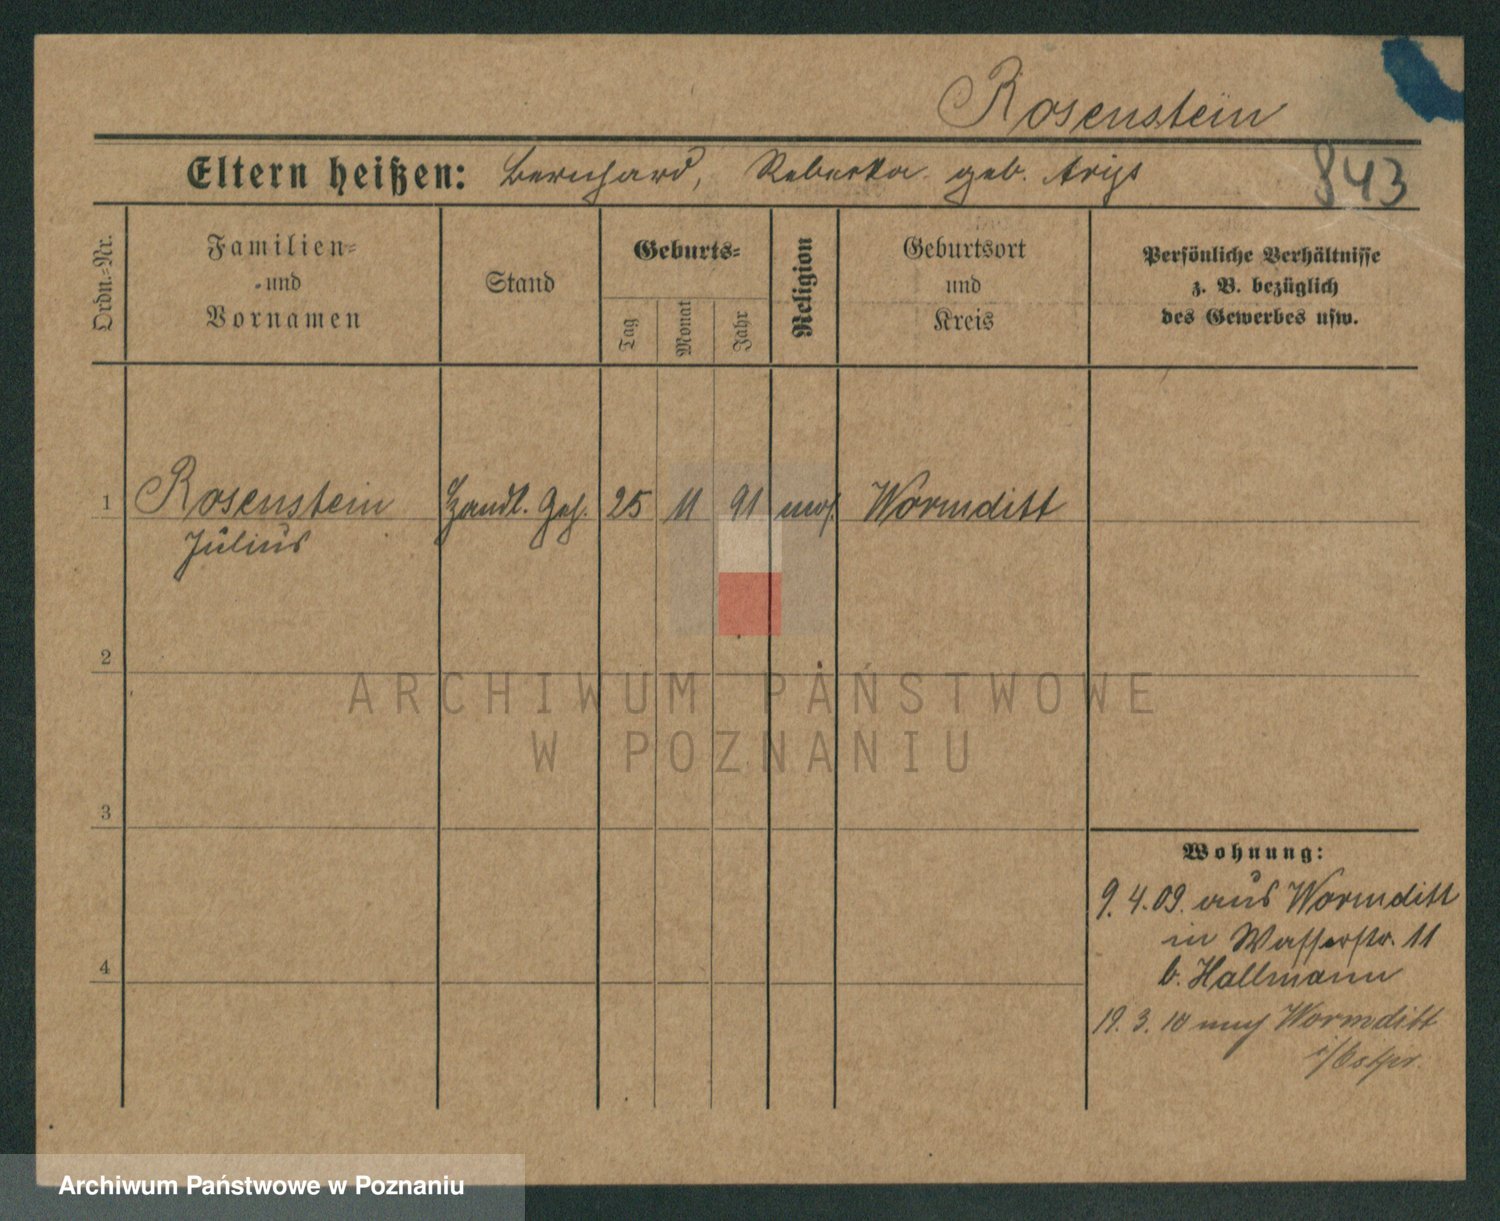 Rosenstein
Eltern heißen: Bernhard, Rebecka geb. Arigs
843
Ordn.-Nr.
Familien-
und
Vornamen
Stand
Geburts-
Tag
Monat
Jahr
Religion
Geburtsort
und
Kreis
Persönliche Verhältnisse
z. B. bezüglich
des Gewerbes usw.
1 Rosenstein Handl. Geh. 25 11 91 mos. Wormditt
Julius
2
3
4
Wohnung:
9.4.09. aus Wormditt
in Wasserstr. 11
b. Hallmann
19.3.10 nach Wormditt
i/Ostpr.
ARCHIWUM PAŃSTWOWE
W POZNANIU
Archiwum Państwowe w Poznaniu